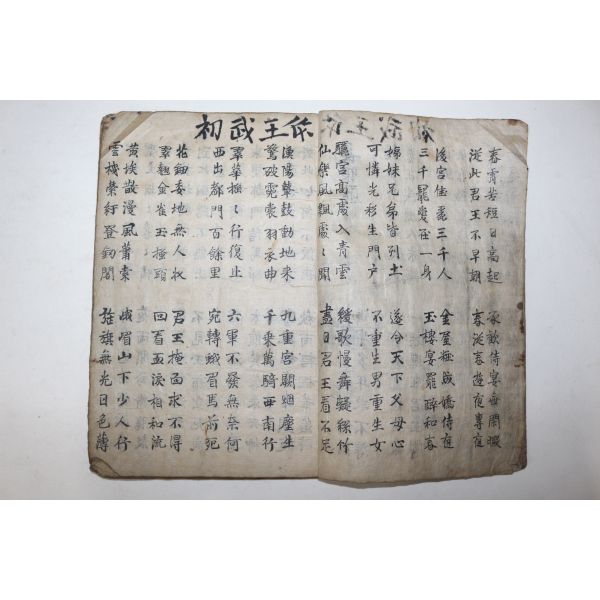 王武初
春宵苦短日高起
從此君王不早朝
承歡侍宴無閑暇
春從春遊夜專夜
後宮佳麗三千人
三千寵愛在一身
金屋粧成嬌侍夜
玉樓宴罷醉和春
姊妹兄弟皆列土
可憐光彩生門户
遂令天下父母心
不重生男重生女
驪宮高處入青雲
仙樂風飄處〻聞
緩歌慢舞凝絲竹
盡日君王看不足
漁陽鼙鼓動地来
驚破霓裳羽衣曲
九重宮闕烟塵生
千乘萬騎西南行
翠華搖〻行復止
西出都門百餘里
六軍不發無奈何
宛轉蛾眉馬前死
花鈿委地無人收
翠翹金雀玉搔頭
君王掩面求不得
回看血淚相和流
黄埃散漫風蕭索
雲棧縈紆登釼閣
峨眉山下少人行
旌旗無光日色薄